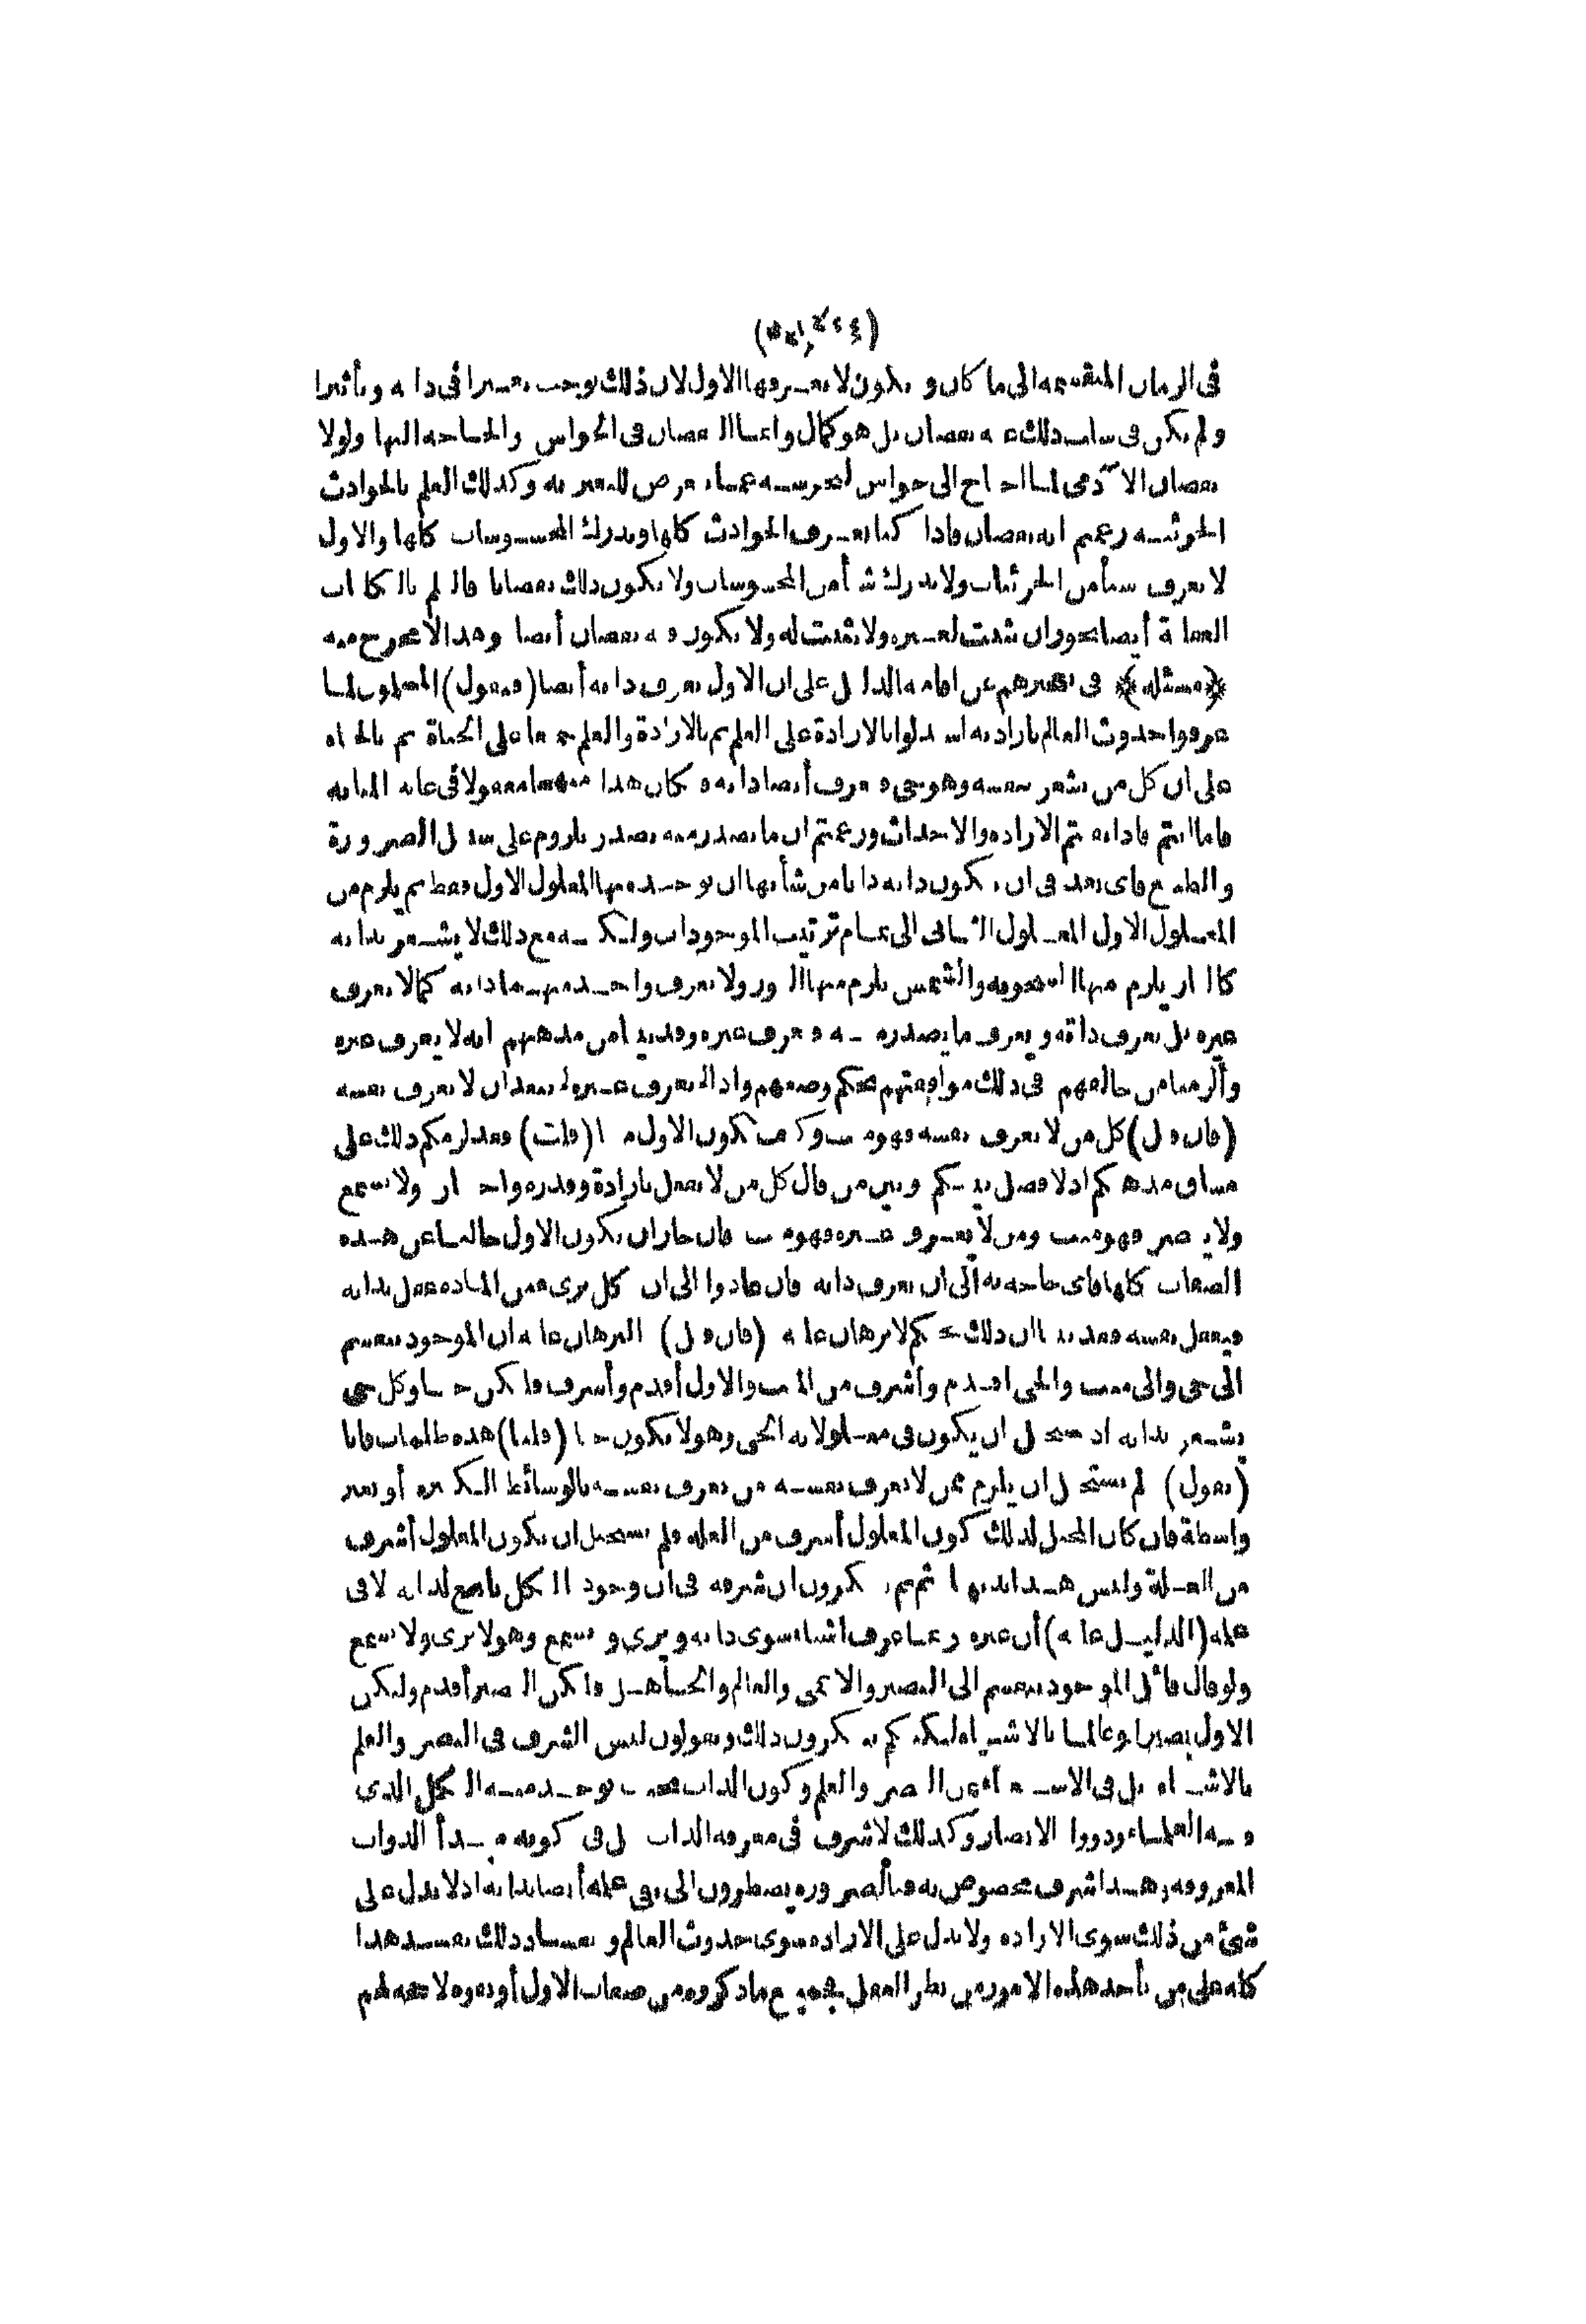 في الزمان المنقسمة الى ما كان و يكون لا يعرفها الاول لان ذلك يوجب تغيرا في ذاته وتأثيرا
ولم يكن في سلب ذلك عنه نقصان بل هو كمال وانما النقصان في الحواس والحاجة اليها ولولا
نقصان الآدمى لما احتاج الى حواس لتحرسه عما يعرض للتغير به وكذلك العلم بالحوادث
الجزئية زعمتم انه نقصان فاذا كنا نعرف الحوادث كلها وندرك المحسوسات كلها والاول
لا يعرف شيأ من الجزئيات ولا يدرك شيأ من المحسوسات ولا يكون ذلك نقصانا فالعلم بالكليات
العقلية أيضا يجوز ان يثبت لغيره ولا يثبت له ولا يكون فيه نقصان أيضا وهذا لا مخرج منه
﴿مسئلة﴾ في تعجيزهم عن اقامة الدليل على ان الاول يعرف ذاته أيضا (فنقول) المسلمون لما
عرفوا حدوث العالم بارادته استدلوا بالارادة على العلم ثم بالارادة والعلم جميعا على الحياة ثم بالحياة
على ان كل من يشعر بنفسه وهو حى فيعرف أيضا ذاته فكان هذا منهجا معقولا في غاية المتانة
فاما انتم فاذا نفيتم الارادة والاحداث وزعمتم ان ما يصدر منه يصدر بلزوم على سبيل الضرورة
والطبع فاى بعد في ان يكون ذاته ذاتا من شأنها ان يوجد منها المعلول الاول فقط ثم يلزم من
المعلول الاول المعلول الثانى الى تمام ترتيب الموجودات ولكنه مع ذلك لا يشعر بذاته
كالنار يلزم منها السخونة والشمس يلزم منها النور ولا يعرف واحد منهما ذاته كما لا يعرف
غيره بل يعرف ذاته ويعرف ما يصدر منه فيعرف غيره وقد بينا من مذهبهم انه لا يعرف غيره
وألزمنا من خالفهم في ذلك موافقتهم بحكم وضعهم واذا لم يعرف غيره لم يبعد ان لا يعرف نفسه
(فان قيل) كل من لا يعرف نفسه فهو ميت وكيف يكون الاول ميتا (قلت) فقد لزمكم ذلك على
مساق مذهبكم اذ لا فصل بينكم وبين من قال كل من لا يفعل بارادة وقدرة واختيار ولا يسمع
ولا يبصر فهو ميت ومن لا يعرف غيره فهو ميت فان جاز ان يكون الاول خاليا عن هذه
الصفات كلها فاى حاجة به الى ان يعرف ذاته فان عادوا الى ان كل برىء عن المادة عقل بذاته
فيعقل نفسه فقد بينا ان ذلك تحكم لا برهان عليه (فان قيل) البرهان عليه ان الموجود ينقسم
الى حى والى ميت والحى اقدم وأشرف من الميت والاول أقدم وأشرف فليكن حيا وكل حى
يشعر بذاته اذ يستحيل ان يكون في معلولاته الحى وهو لا يكون حيا (قلنا) هذه ظلمات فانا
(نقول) لم يستحيل ان يلزم ممن لا يعرف نفسه من يعرف نفسه بالوسائط الكثيرة أو بغير
واسطة فان كان المحيل لذلك كون المعلول أشرف من العلة فلم يستحيل ان يكون المعلول أشرف
من العلة وليس هذا بديهيا ثم بم تنكرون ان شرفه في ان وجود الكل تابع لذاته لا في
علمه (الدليل عليه) أن غيره ربما عرف أشياء سوى ذاته ويرى ويسمع وهو لا يرى ولا يسمع
ولو قال قائل الموجود ينقسم الى البصير والاعمى والعالم والجاهل فليكن البصير أقدم وليكن
الاول بصيرا وعالما بالاشياء لكنكم تنكرون ذلك وتقولون ليس الشرف في البصر والعلم
بالاشياء بل في الاستغناء عن البصر والعلم وكون الذات بحيث يوجد منه الكل الذى
فيه العلماء وذووا الابصار وكذلك لا شرف في معرفة الذات بل في كونه مبدأ لذوات
المعرفة وهذا شرف مخصوص به فبالضرورة يضطرون الى نفى علمه أيضا بذاته اذ لا يدل على
شئ من ذلك سوى الارادة ولا يدل على الارادة سوى حدوث العالم وبفساد ذلك يفسد هذا
كله على من يأخذ هذه الامور من نظر العقل فجميع ما ذكروه من صفات الاول أو نفوه لا حجة لهم